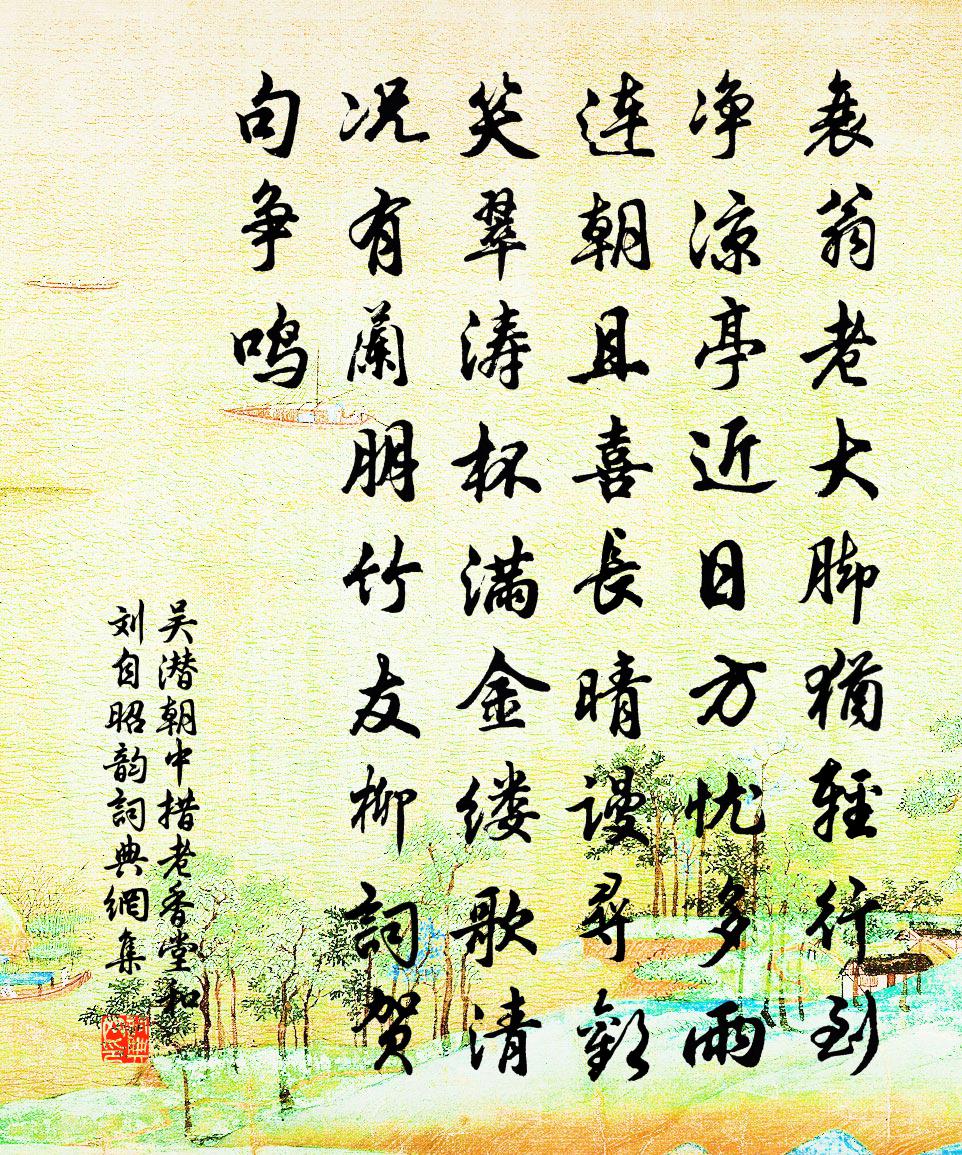 衰翁老大脚猶輕行到
净涼亭近日方忧多雨
連朝且喜長晴謾尋歡
笑翠涛杯满金缕歌清
况有蘭朋竹友柳詞贺
句争鸣
吴潜朝中措老香堂和
刘自昭韵詞典網集